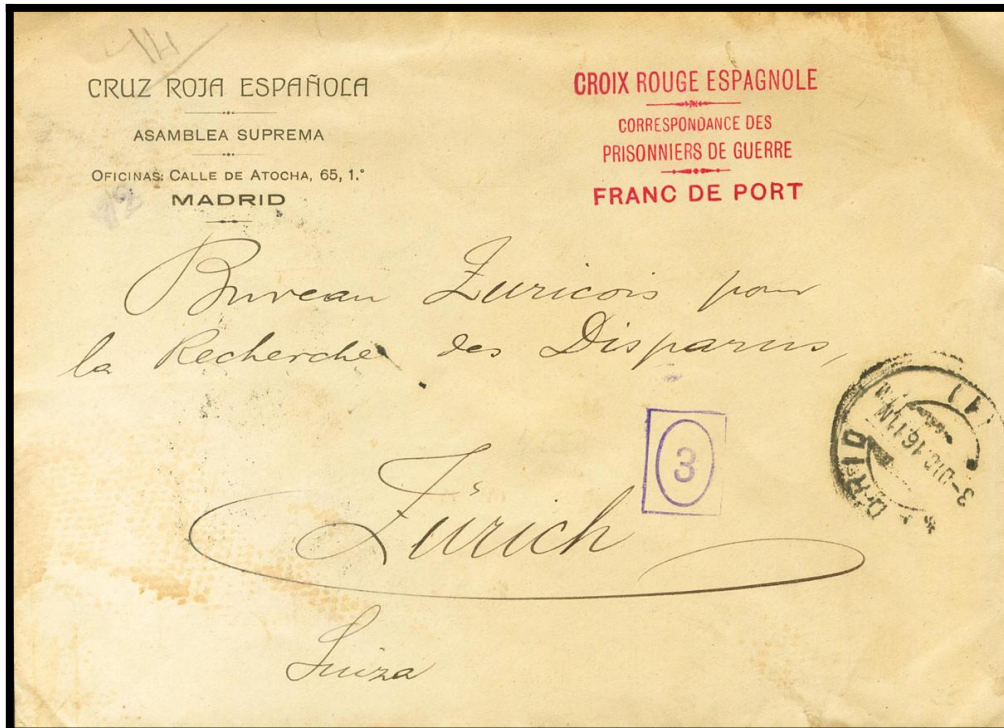 CRUZ ROJA ESPAÑOLA
ASAMBLEA SUPREMA
OFICINAS: CALLE DE ATOCHA, 65, 1.°
MADRID
CROIX ROUGE ESPAGNOLE
CORRESPONDANCE DES
PRISONNIERS DE GUERRE
FRANC DE PORT
Bureau Zuricois pour
la Recherche des Disparus,
3
Zürich
Suiza
3-DIC.16